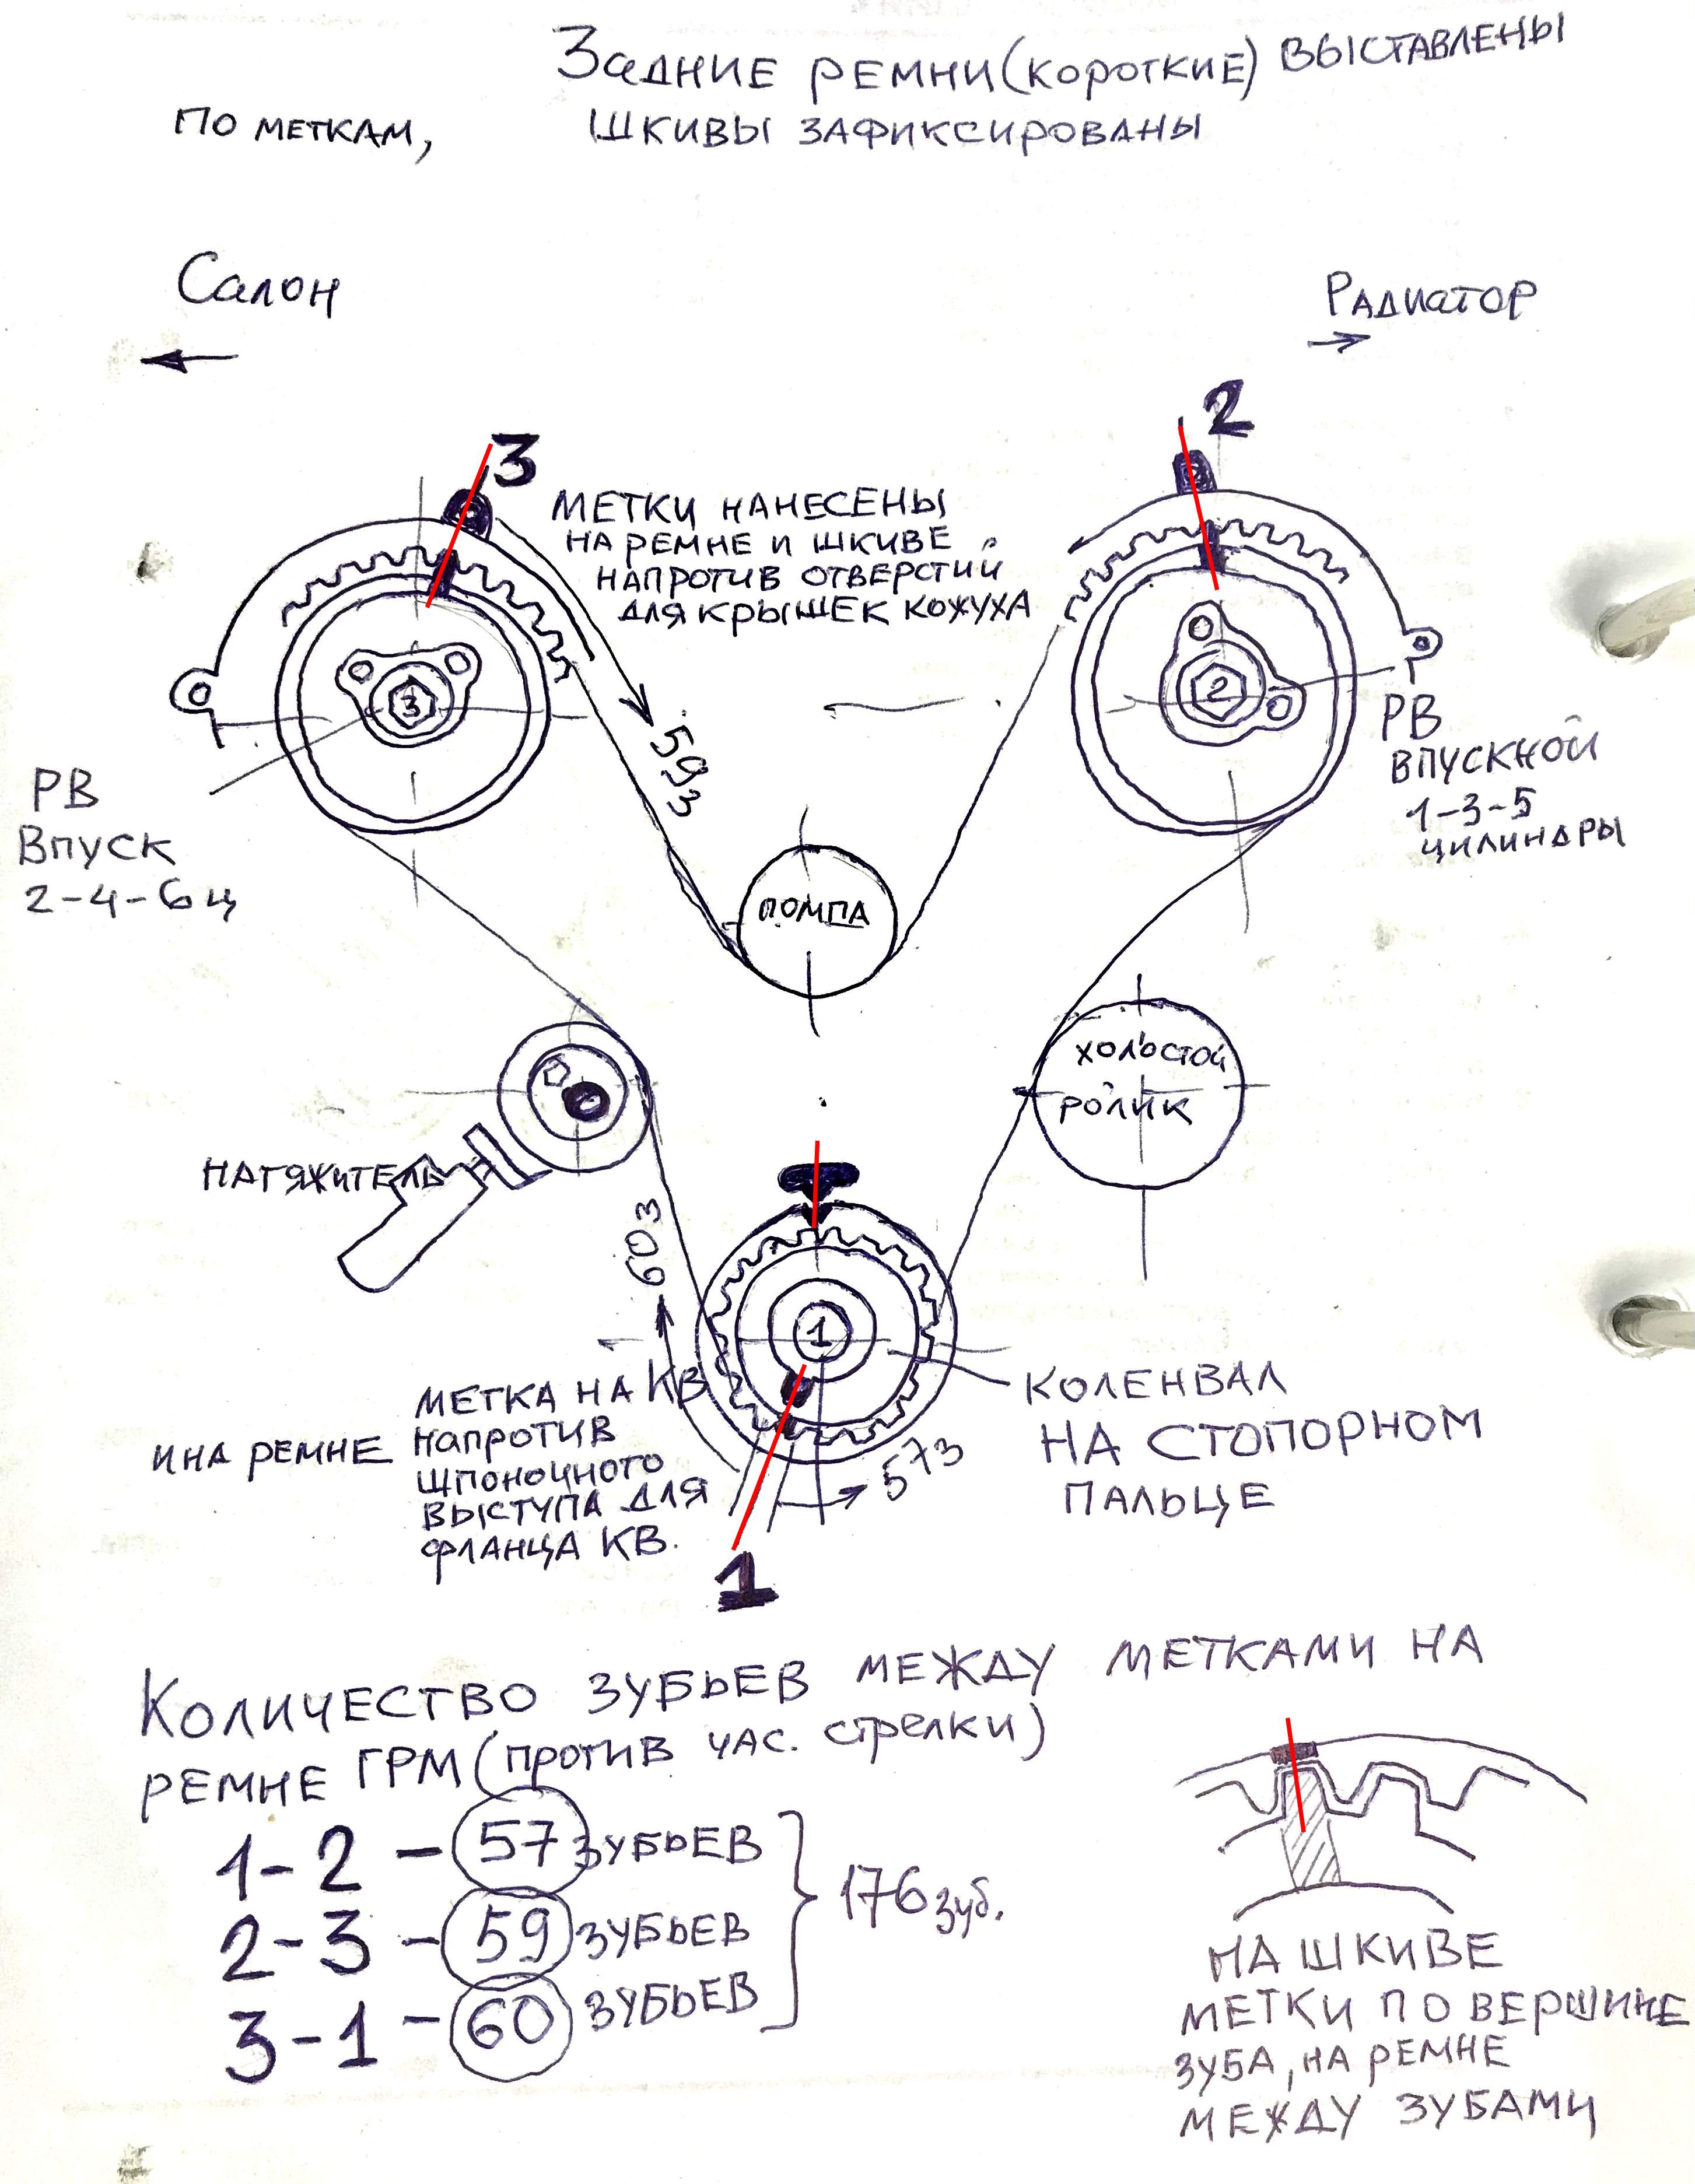 Задние ремни (короткие) выставлены
по меткам, шкивы зафиксированы
Салон
Радиатор
3
2
Метки нанесены
на ремне и шкиве
напротив отверстий
для крышек кожуха
593
3
2
РВ
Впуск
2-4-6ц
РВ
впускной
1-3-5
цилиндры
помпа
хольстой
ролик
натяжитель
603
1
метка на КВ
и на ремне напротив
шпоночного
выступа для
фланца КВ.
573
1
Коленвал
на стопорном
пальце
Количество зубьев между метками на
ремне ГРМ (против час. стрелки)
1-2 - 57 зубьев
2-3 - 59 зубьев
3-1 - 60 зубьев
176 зуб.
На шкиве
метки по вершине
зуба, на ремне
между зубами